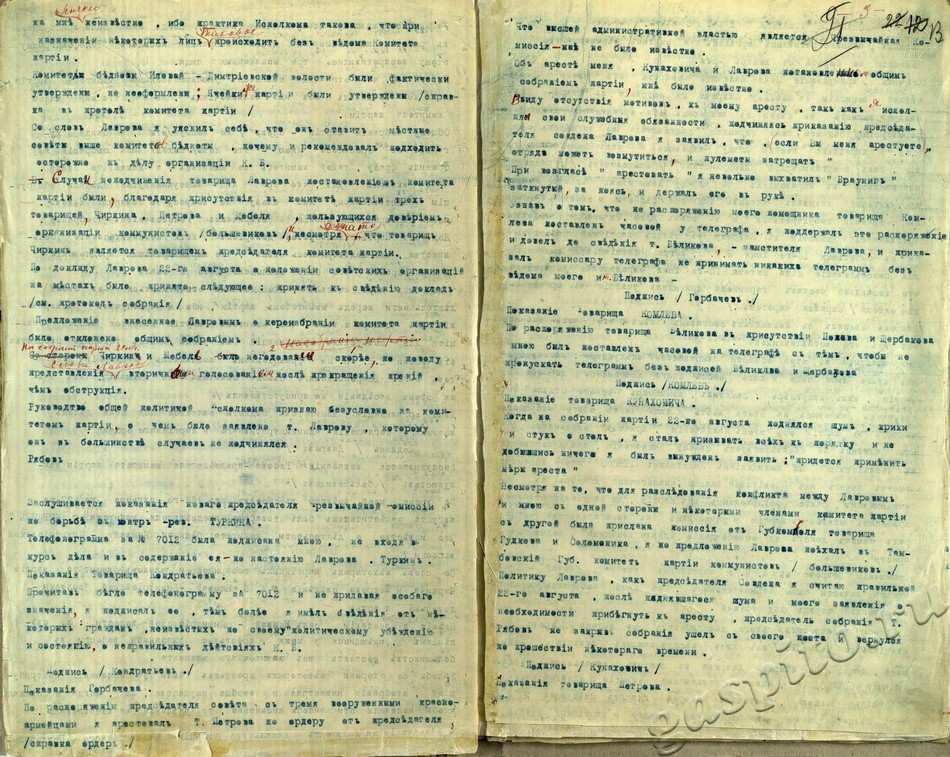 лично
на мнѣ неизвѣстно , ибо практика Исполкома такова , что при
таковое
назначеніи нѣкоторыхъ лицъ происходитъ безъ вѣдома Комитета
партіи .
Комитеты бѣдноты Иловай - Дмитріевской волости были фактически
утверждены , не оформлены ; Ячейки партіи были утверждены /справ-
ка въ протоколѣ комитета партіи /
Со словъ Лаврова я уяснилъ себѣ , что онъ ставитъ мѣстные
совѣты выше комитетовъ бѣдноты , почему и рекомендовалъ подходить
осторожно къ дѣлу организаціи К. Б.
Случаи неподчиненія товарища Лаврова постановленіямъ комитета
партіи были, благодаря присутствія въ комитетѣ партіи трехъ
товарищей, Чиркина , Петрова и Мебеля , пользующихся довѣріемъ
организаціи коммунистовъ /большевиковъ/, несмотря на то что товарищъ
Чиркинъ является товарищемъ предсѣдателя комитета партіи.
По докладу Лаврова 22-го августа о положеніи совѣтскихъ организацій
на мѣстахъ было принято слѣдующее : принять къ свѣдѣнію докладъ
/см. протоколъ собранія /
Предложеніе внесенное Лавровымъ о переизбраніи комитета партіи
было отклонено общимъ собраніемъ .
Со стороны Чиркина и Мебеля было негодованіе скорѣе по поводу
представленія вторичнымъ голосованіемъ послѣ прекращенія преній ,
чѣмъ обструкція.
Руководство общей политикой Исполкома признаю безусловно за коми-
тетомъ партіи, о чемъ было заявлено т. Лаврову , которому
онъ въ большинствѣ случаевъ не подчинялся .
Рябовъ
Заслушивается показанія новаго предсѣдателя чрезвычайной комиссіи
по борьбѣ съ контръ -рев. ТУРКИНА .
Телефонограмма за № 7012 была подписана мною , не входя въ
курсъ дѣла и въ содержаніе ея - по настоянію Лаврова . Туркинъ .
Показанія Товарища Кондратьева .
Прочитавъ бѣгло телефонограмму за 7012 и не придавая особаго
значенія, я подписалъ ее , тѣмъ болѣе я имѣлъ свѣдѣнія отъ нѣ-
которыхъ гражданъ , неизвѣстныхъ по своему политическому убѣжденію
и состоянію, о неправильныхъ дѣйствіяхъ К. Б.
Подпись / Кондратьевъ ./
Показанія Горбачева .
По распоряженію предсѣдателя совѣта съ тремя вооруженными красно-
армейцами я арестовалъ Т. Петрова по ордеру отъ предсѣдателя
/справка ордеръ ./
Что высшей административной властью является Чрезвычайная Ко-
миссія - мнѣ не было извѣстно .
Объ арестѣ меня , Кунаховича и Лаврова постановленномъ общимъ
собраніемъ партіи, мнѣ было извѣстно .
Ввиду отсутствія мотивовъ , къ моему аресту , такъ какъ я испол-
нялъ свои служебныя обязанности , подчиняясь приказанію предсѣда-
теля совдепа Лаврова я заявилъ , что , если Вы меня арестуете,
отрядъ можетъ возмутиться , и пулеметы затрещатъ "
При возгласѣ " арестовать " я невольно выхватилъ " Браунигъ "
заткнутый, за поясъ, и держалъ его въ рукѣ .
Узнавъ о томъ, что по распоряженію моего помощника товарища Ком-
лева поставленъ часовой у телеграфа , я поддержалъ это распоряженіе
и довелъ до свѣдѣнія т. Бѣликова , - замѣстителя Лаврова, и прика-
залъ комиссару телеграфа не принимать никакихъ телеграммъ безъ
вѣдома моего и т. Бѣликова -
Подпись / Горбачевъ ./
Показаніе товарища КОМЛЕВА .
По распоряженію товарища Бѣликова въ присутствіи Попова и Щербакова
мною былъ поставленъ часовой на телеграфѣ съ тѣмъ, чтобы не
пропускать телеграммъ безъ подписей Бѣликова и Щербакова
Подпись /КОМЛЕВЪ ./
Показаніе товарища КУНАХОВИЧА .
Когда на собраніи партіи 22-го августа поднялся шумъ , крики
и стукъ о столъ , я сталъ призывать всѣхъ къ порядку и не
добившись ничего я былъ вынужденъ заявить :"придется примѣнить
мѣры ареста "
Несмотря на то, что для разслѣдованія конфликта между Лавровымъ
и мною съ одной стороны и нѣкоторыми членами комитета партіи
съ другой была прислана комиссія отъ Губкомбола товарища
Гудкова и Соломоника , я по предложенію Лаврова поѣхалъ въ Там-
бовскій Губ. комитетъ партіи коммунистовъ / большевиковъ /
Политику Лаврова , какъ предсѣдателя Совдепа я считаю правильной
22-го августа , послѣ поднявшагося шума и моего заявленія о
необходимости прибѣгнуть къ аресту , предсѣдатель собранія Т.
Рябовъ не закрывъ собранія ушелъ съ своего поста и вернулся
по прошествіи нѣкотораго времени .
Подпись / Кунаховичъ /
Показанія товарища Петрова .
gaspito.ru